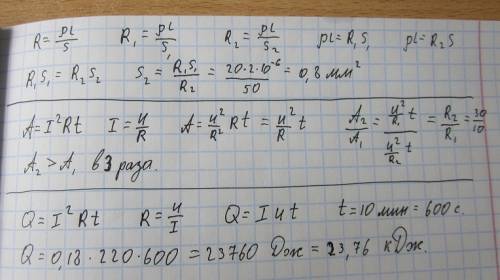 R = ρl/S   R₁ = ρl/S₁   R₂ = ρl/S₂   ρl = R₁S₁   ρl = R₂S
R₁S₁ = R₂S₂   S₂ = R₁S₁/R₂ = 20·2·10⁻⁶/50 = 0,8 мм²
A = I²Rt   I = u/R   A = u²/R² Rt = u²/R t   A₂/A₁ = (u²/R₁ t)/(u²/R₂ t) = R₂/R₁ = 30/10
A₂ > A₁ в 3 раза.
Q = I²Rt   R = u/I   Q = Iut   t = 10 мин = 600 с.
Q = 0,18 · 220 · 600 = 23760 Дж = 23,76 кДж.